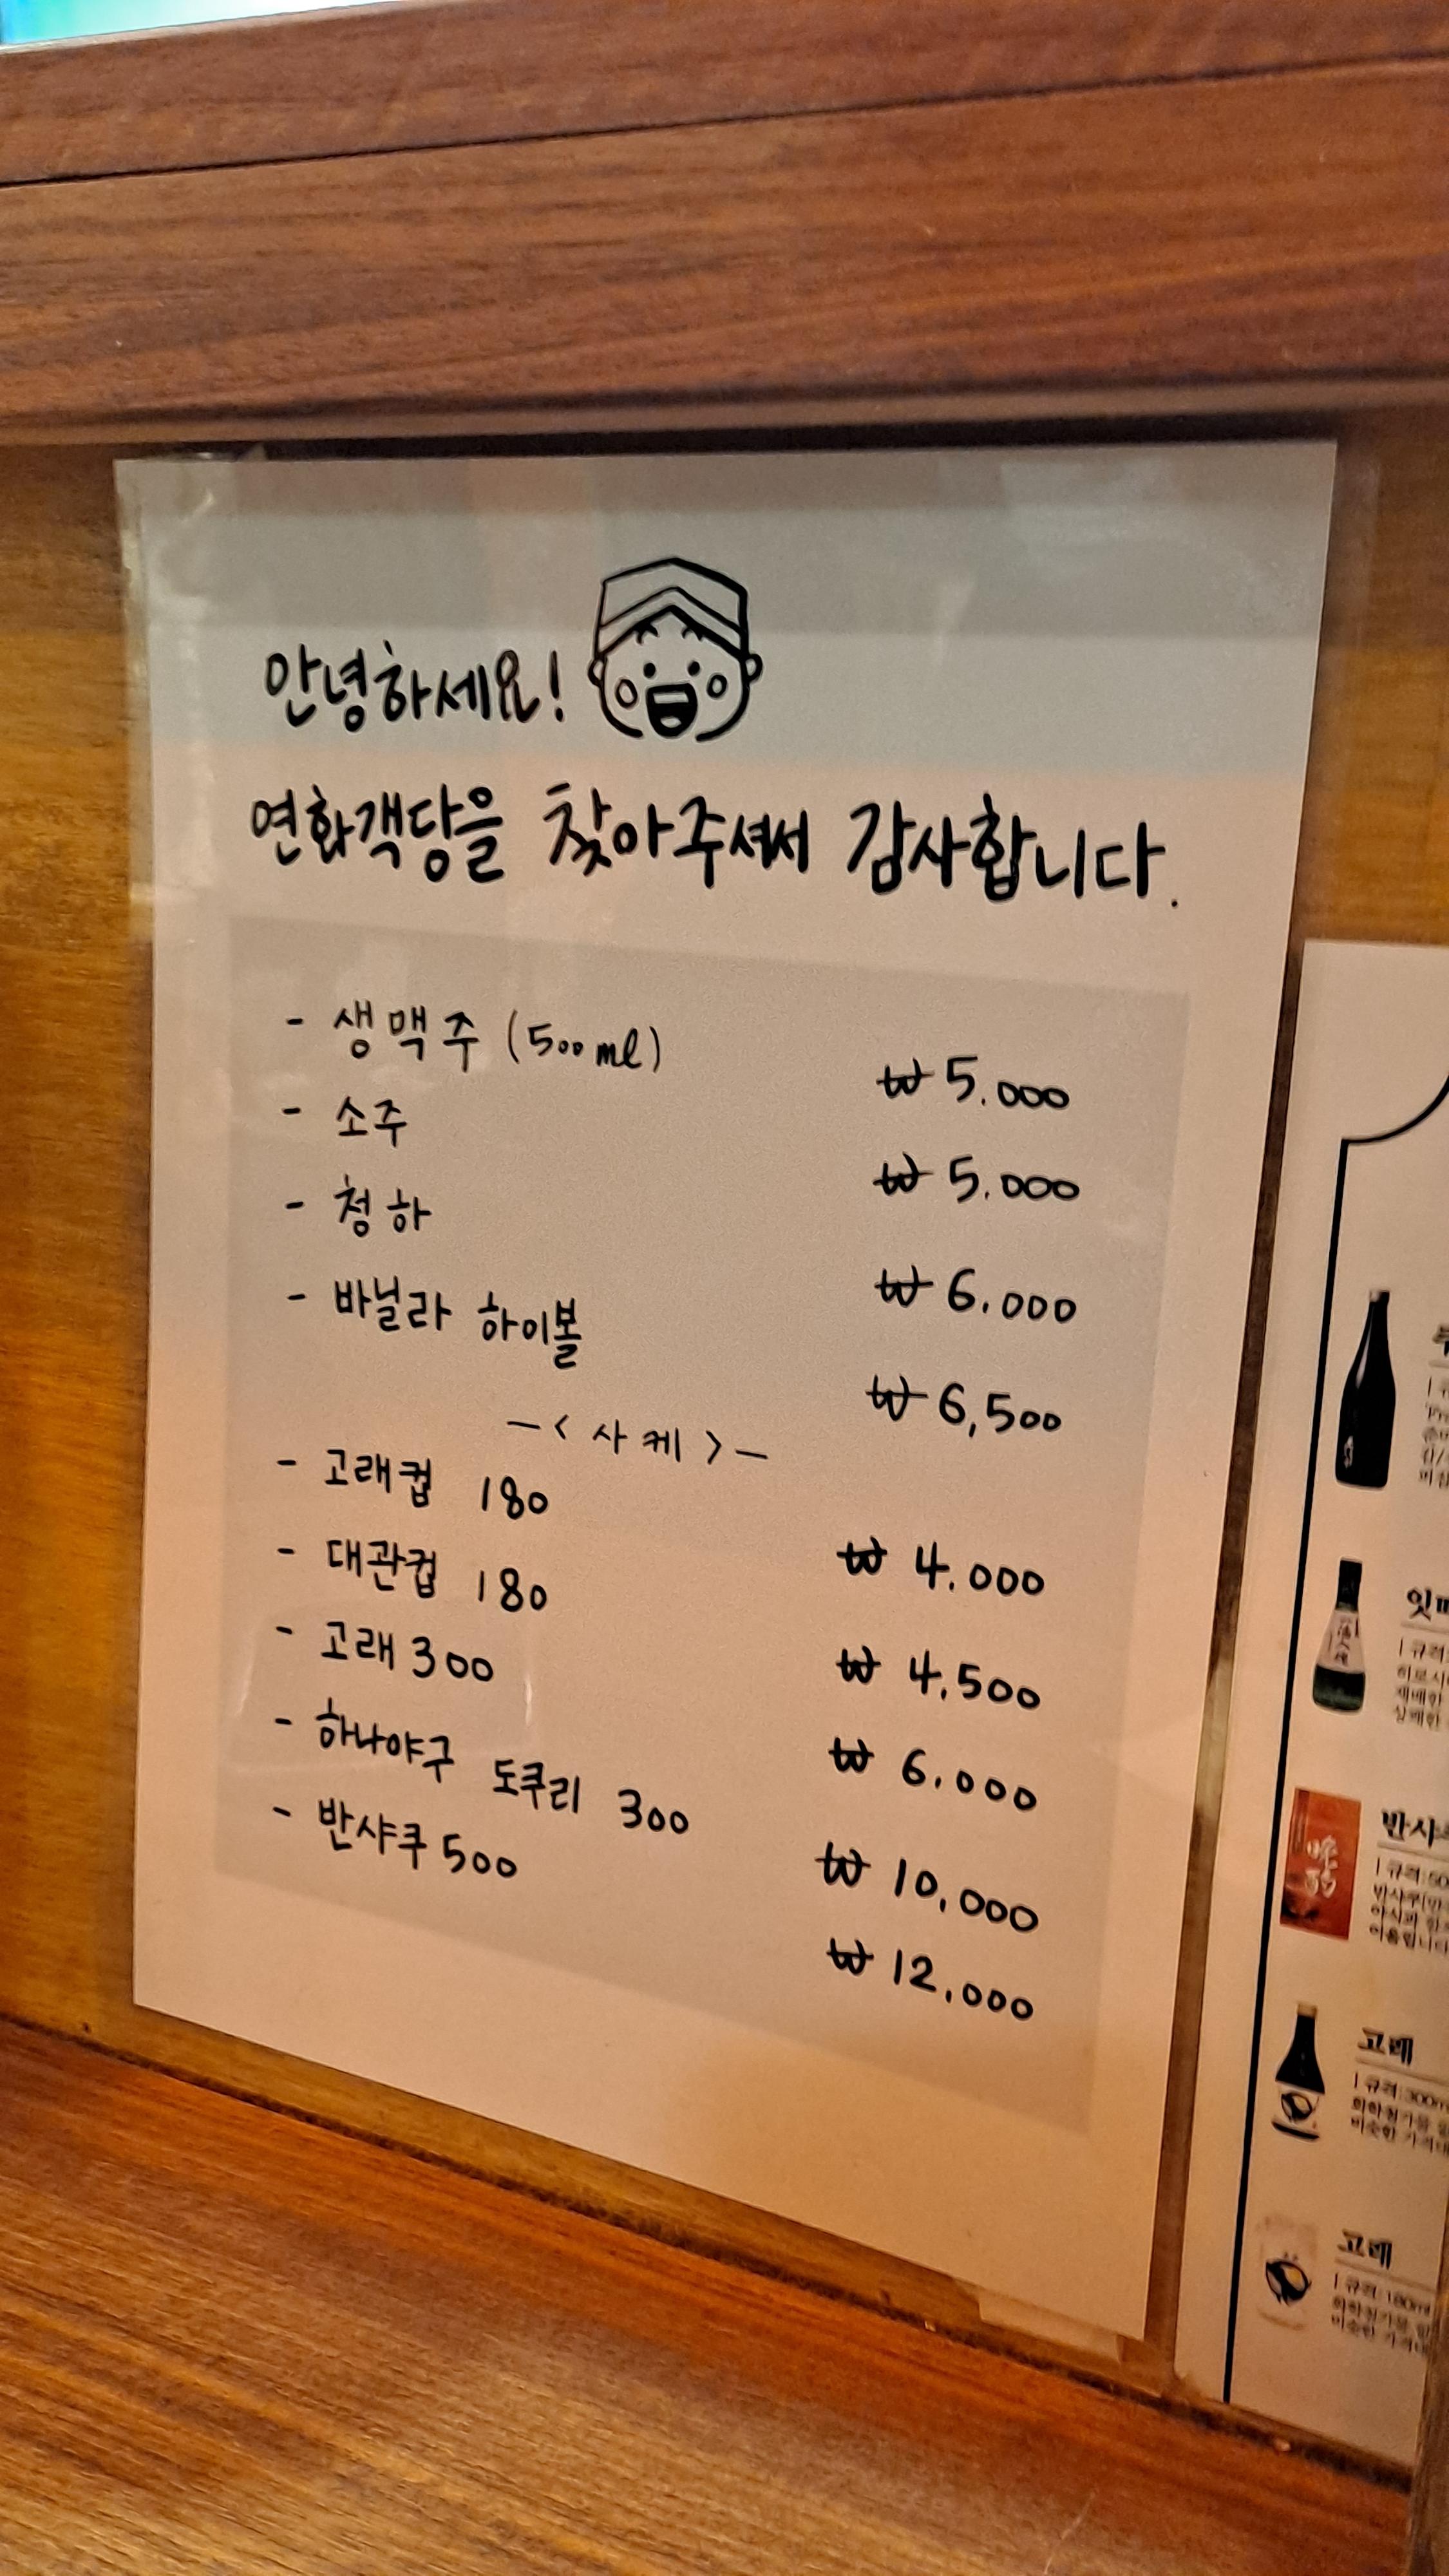 안녕하세요!
연화객당을 찾아주셔서 감사합니다.
- 생맥주 (500ml) ₩ 5.000
- 소주 ₩ 5.000
- 청하 ₩ 6.000
- 바닐라 하이볼 ₩ 6,500
-< 사케 >-
- 고래컵 180 ₩ 4.000
- 대관컵 180 ₩ 4.500
- 고래 300 ₩ 6.000
- 하나야구 도쿠리 300 ₩ 10,000
- 반샤쿠 500 ₩ 12.000
고래
| 규격: 300m
고래
| 규격: 180ml